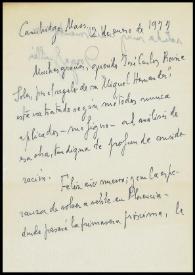 Cambridge, Mass., 2 de enero de 1979
Muchas gracias, querido José Carlos Rovira
Soler, por el regalo de su "Miguel Hernández",
está tratado según métodos nunca
aplicados —me figuro— al análisis de
esa obra, tan digna de profunda conside-
ración.
Feliz año nuevo, y con la espe-
ranza de volver a verle en
donde pasaré la primavera próxima, le